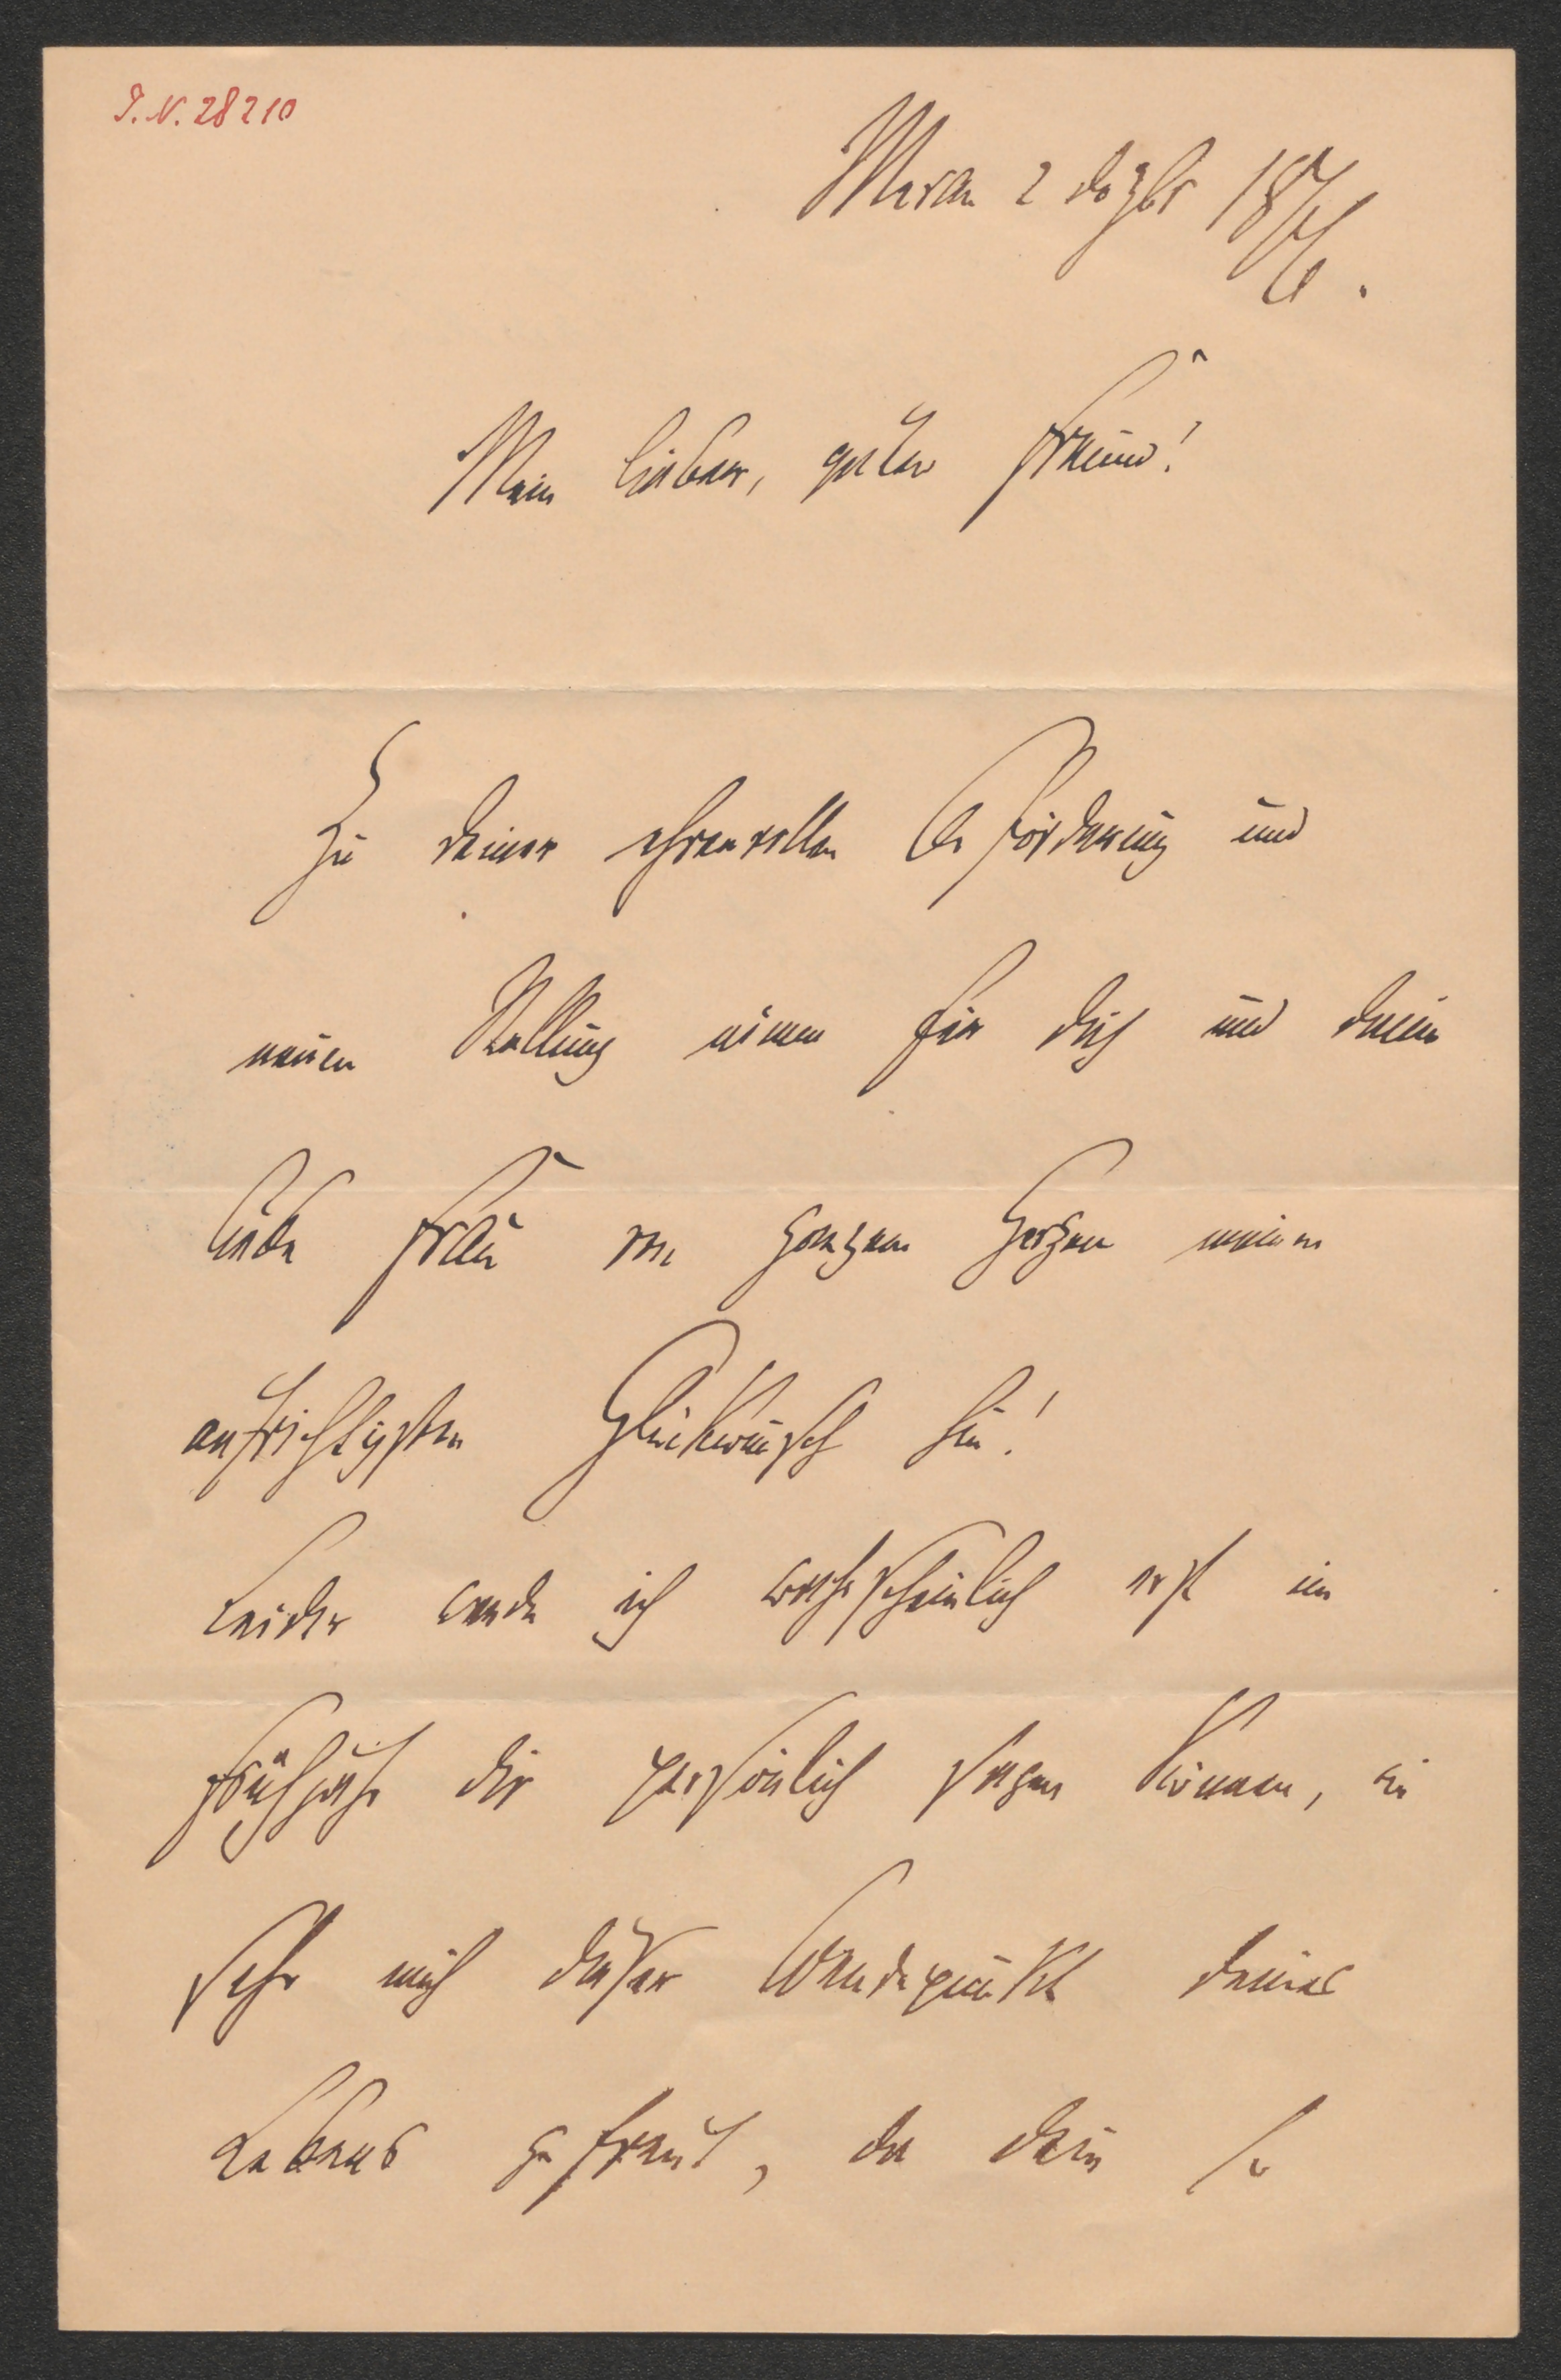 I.N. 28210
Meran 2 dezbr 1876.
Mein lieber, guter Freund!
Zu deiner ehrenvollen Beförderung und
neuen Stellung nimm für dich und deine
liebe Frau von ganzem Herzen meinen
aufrichtigsten Glückwunsch hin!
Leider werde ich wahrscheinlich erst im
Frühjahr dir persönlich sagen können, wie
sehr mich dieser Wendepunkt deines
Lebens gefreut, da dein so